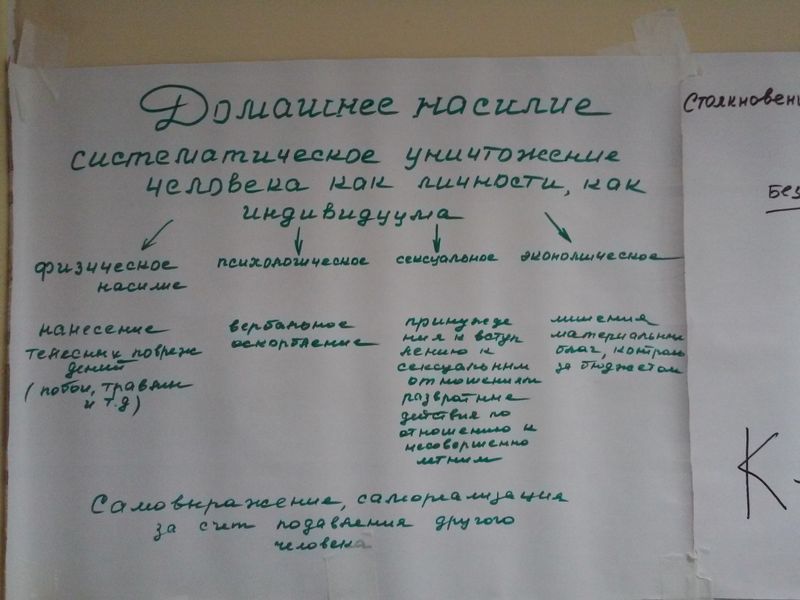 Домашнее насилие
систематическое уничтожение
человека как личности, как
индивидуума
физическое
насилие
психологическое
сексуальное
экономическое
нанесение
телесных повреж
дений
(побои, травмы
и т.д)
вербальное
оскорбление
принужде
ния к вступ
лению к
сексуальным
отношениям
развратные
действия по
отношению к
несовершенно
летним
лишения
материальных
благ, контроль
за бюджетом
Самовыражение, самореализация
за счет подавления другого
человека
Столкновени
без
К